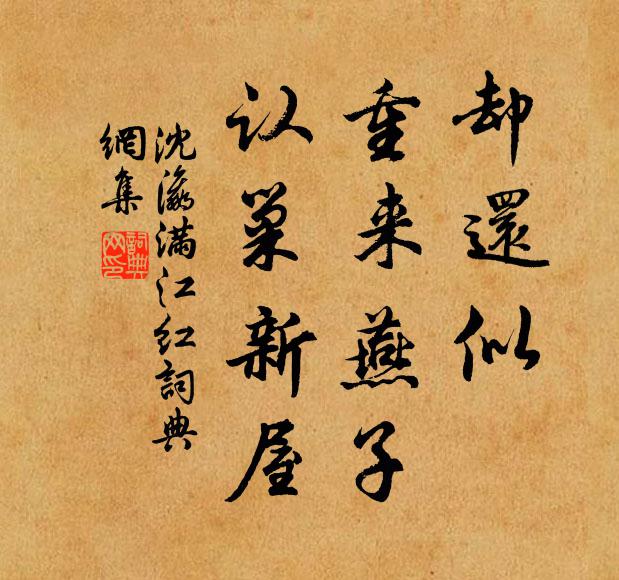 却還似
重来燕子
认巢新屋
沈瀛满江红词典
網集
詞典
网印